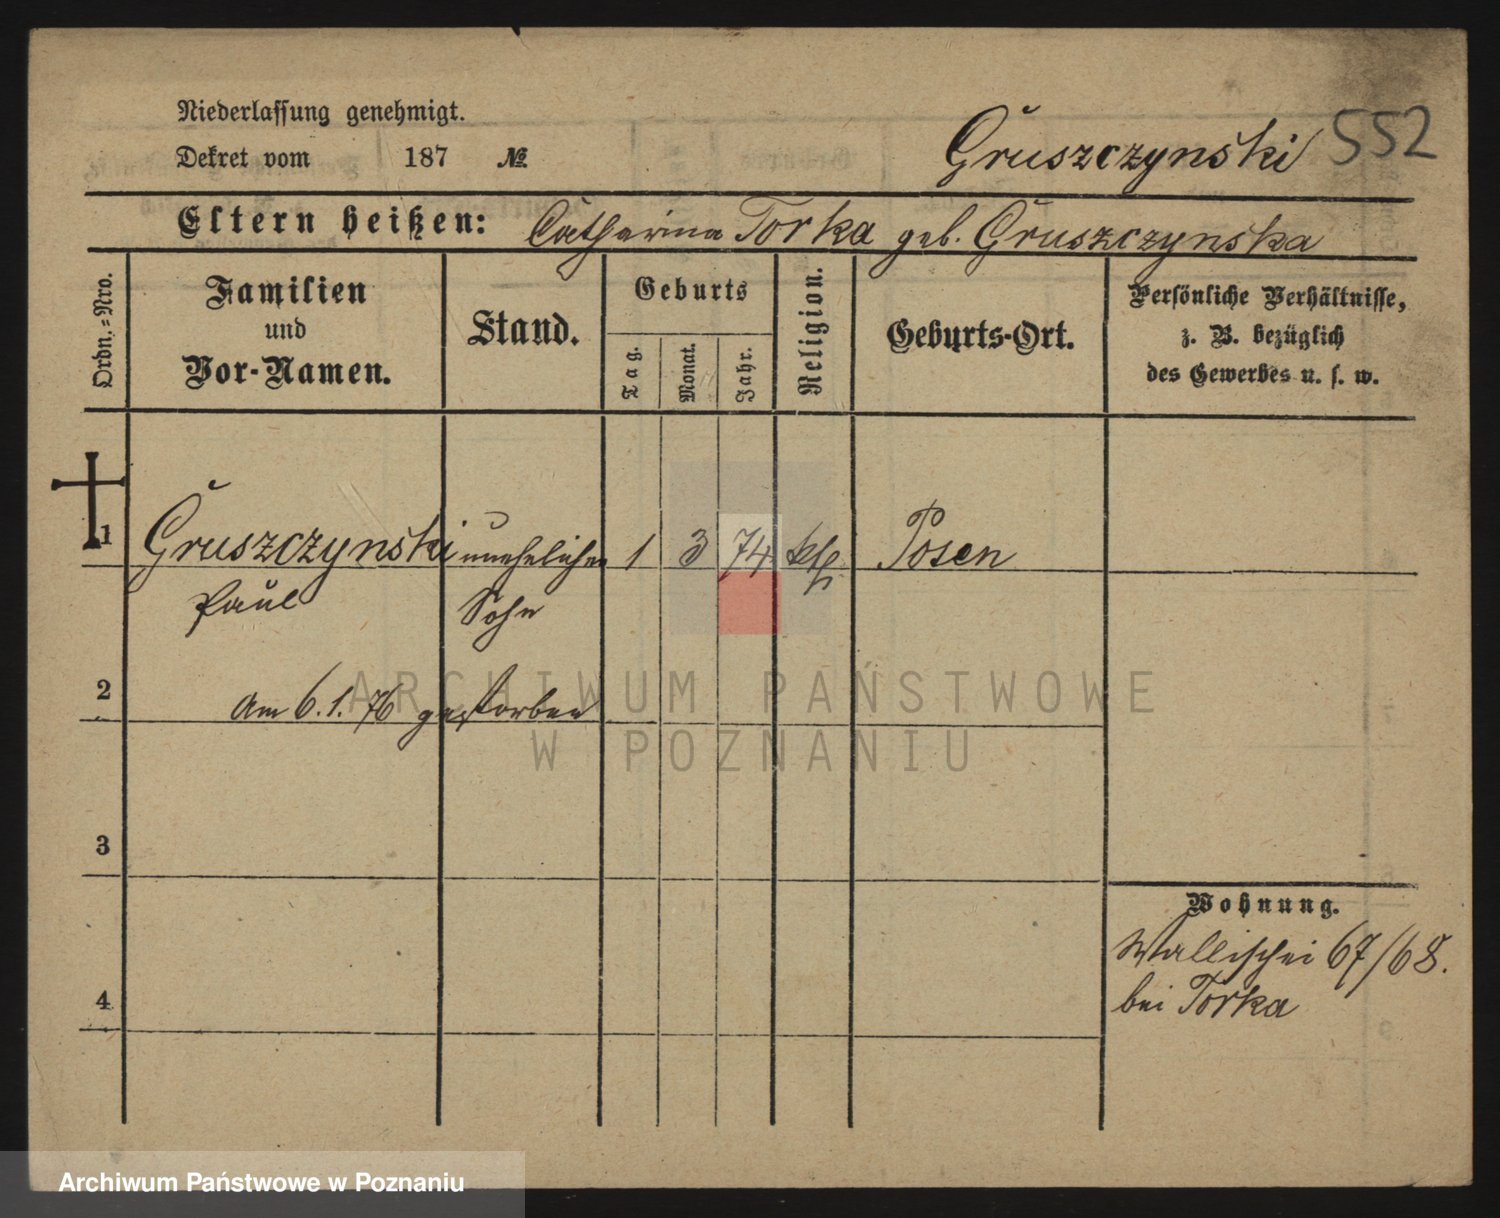 Niederlassung genehmigt.
Dekret vom 187 №
Gruszczynski 552
Eltern heißen: Catharina Torka geb. Gruszczynska
Ordn.-Nro.
Familien und Vor-Namen.
Stand.
Geburts
Tag.
Monat.
Jahr.
Religion.
Geburts-Ort.
Persönliche Verhältnisse,
z. B. bezüglich
des Gewerbes u. s. w.
1 Gruszczynski unehelicher 1 3 74 kth. Posen
Paul Sohn
2 Am 6.1.76 gestorben
ARCHIWUM PAŃSTWOWE
W POZNANIU
3
Wohnung.
Wallischei 67/68.
4 bei Torka
Archiwum Państwowe w Poznaniu